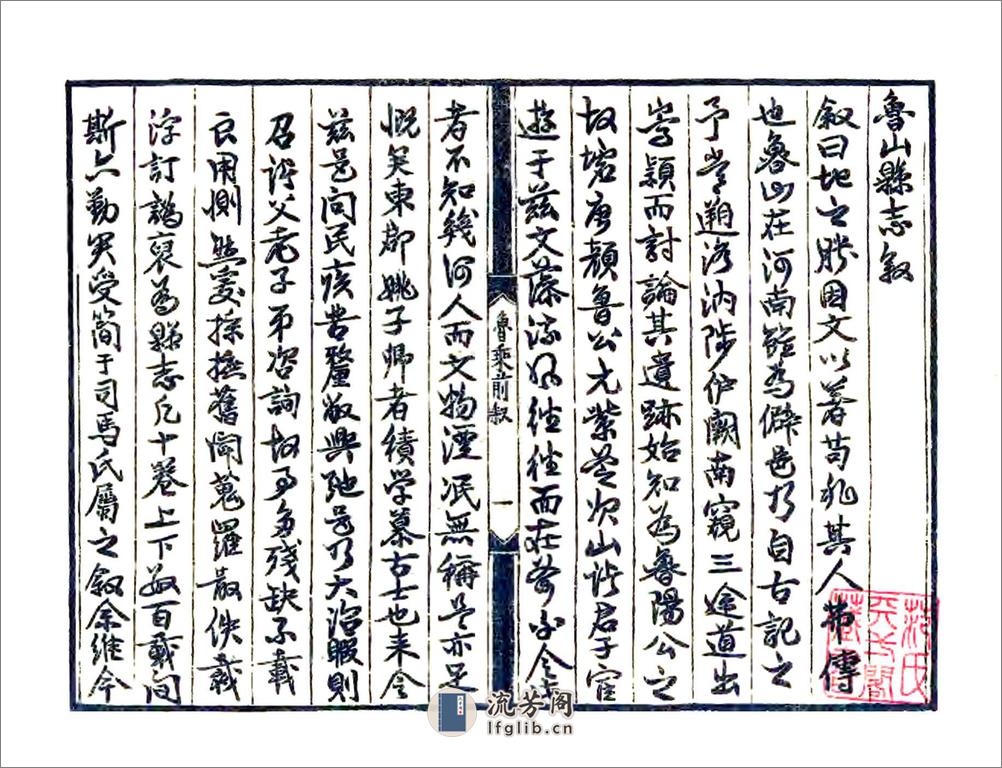 魯山縣志叙
叙曰地之勝因文以著苟非其人弗傳
也魯山在河南雖為僻邑乃自古記之
予嘗遡洛汭陟伊闕南窺三塗道出
嵩潁而討論其遺跡始知為魯陽公之
故墟唐顏魯公元紫芝次山諸君子宦
遊于茲文藻流風往往而在葢學士
者不知幾何人而文物湮泯無稱是亦足
慨矣東郡姚子卿者積学慕古士也来令
茲邑问民疾苦釐敝興弛邑乃大治暇則
召諸父老子弟咨詢故事多殘缺不載
良用惻然爰採摭舊聞蒐羅散佚載
浮訂譌裒為縣志凡十卷上下数百載间
斯亦勤矣受简于司馬氏屬之叙余維今
魯乘前叙
一
流芳阁
lfglib.cn